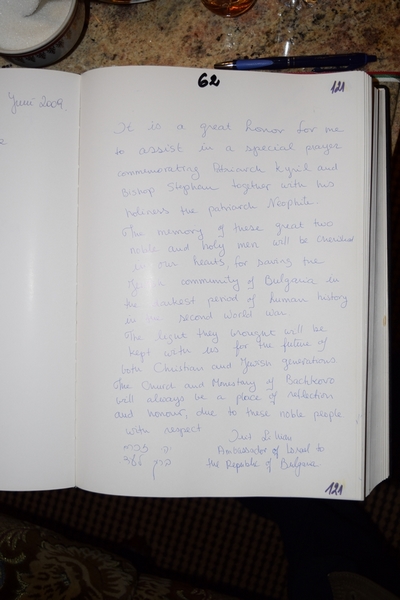 Juni 2009
62
121
It is a great honor for me
to assist in a special prayer
commemorating Patriarch Kyril and
Bishop Stephan together with his
holiness the patriarch Neophite.
The memory of these great two
noble and holy men will be cherished
in our hearts, for saving the
community of Bulgaria in
the darkest period of human history
in second world war.
The light they brought will be
kept with us for the future of
both Christian and Jewish generations.
The Church and Monastery of Bachkovo
will always be a place of reflection
and honour, due to these noble people
with respect
Ambassador of Israel to
the Republic of Bulgaria.
121